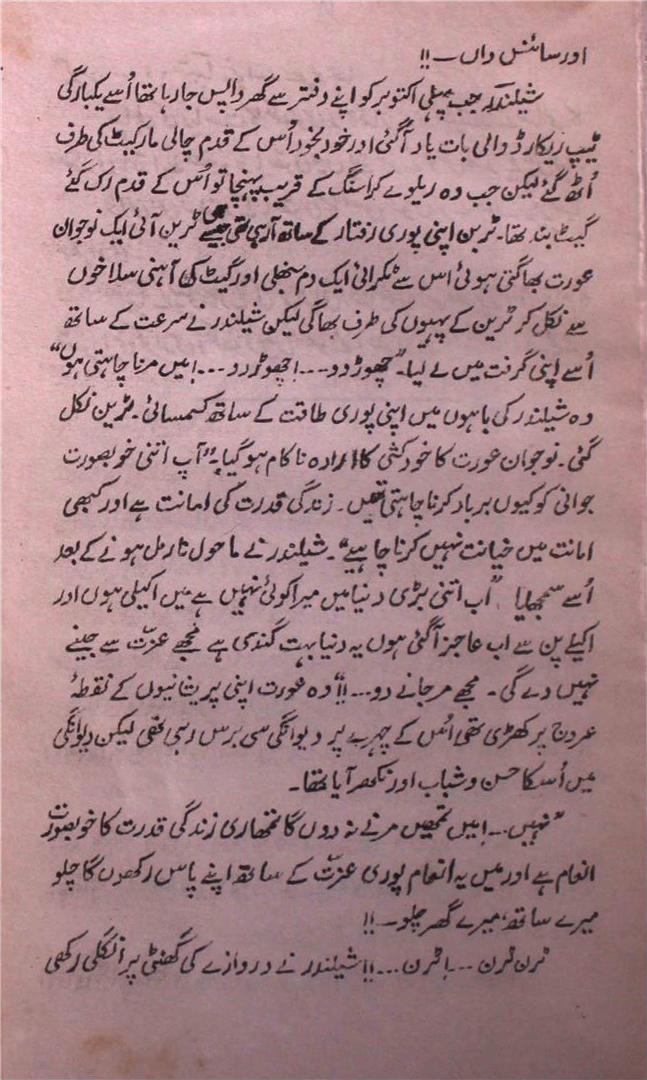 اور سائنس داں ــ!!
شیلندر جب پہلی اکتوبر کو اپنے دفتر سے گھر واپس جارہا تھا اُسے یکبارگی
ٹیپ ریکارڈ والی بات یاد آگئی اور خود بخود اُس کے قدم چالی مارکیٹ کی طرف
اُٹھ گئے لیکن جب وہ ریلوے کراسنگ کے قریب پہنچا تو اُس کے قدم رک گئے
گیٹ بند تھا۔ ٹرین اپنی پوری رفتار کے ساتھ آرہی تھی جیسے ہی ٹرین آئی ایک نوجوان
عورت بھاگتی ہوئی اس سے ٹکرائی ایک دم سنبھلی اور گیٹ کی آہنی سلاخوں
سے نکل کر ٹرین کے پہیوں کی طرف بھاگی لیکن شیلندر نے سرعت کے ساتھ
اُسے اپنی گرفت میں لے لیا۔ ”چھوڑ دو ۔۔۔! چھوڑ دو ۔۔۔! میں مرنا چاہتی ہوں“
وہ شیلندر کی باہوں میں اپنی پوری طاقت کے ساتھ کسمسائی۔ ٹرین نکل
گئی۔ نوجوان عورت کا خودکشی کا ارادہ ناکام ہو گیا۔ ”آپ اتنی خوبصورت
جوانی کو کیوں برباد کرنا چاہتی تھیں۔ زندگی قدرت کی امانت ہے اور کبھی
امانت میں خیانت نہیں کرنا چاہیے“۔ شیلندر نے ماحول نارمل ہونے کے بعد
اُسے سمجھایا ”اب اتنی بڑی دنیا میں میرا کوئی نہیں ہے میں اکیلی ہوں اور
اکیلے پن سے اب عاجز آگئی ہوں یہ دنیا بہت گندی ہے مجھے عزّت سے جینے
نہیں دے گی۔ مجھے مر جانے دو ۔۔۔!!“ وہ عورت اپنی پریشانیوں کے نقطۂ
عروج پر کھڑی تھی اُس کے چہرے پر دیوانگی سی برس رہی تھی لیکن دیوانگی
میں اُسکا حسن و شباب اور نکھر آیا تھا۔
”نہیں ۔۔! میں تمھیں مرنے نہ دوں گا تمھاری زندگی قدرت کا خوبصورت
انعام ہے اور میں یہ انعام پوری عزّت کے ساتھ اپنے پاس رکھوں گا چلو
میرے ساتھ، میرے گھر چلو ــ!!
ٹرن ٹرن ۔۔۔! ٹرن ۔۔۔!! شیلندر نے دروازے کی گھنٹی پر انگلی رکھی